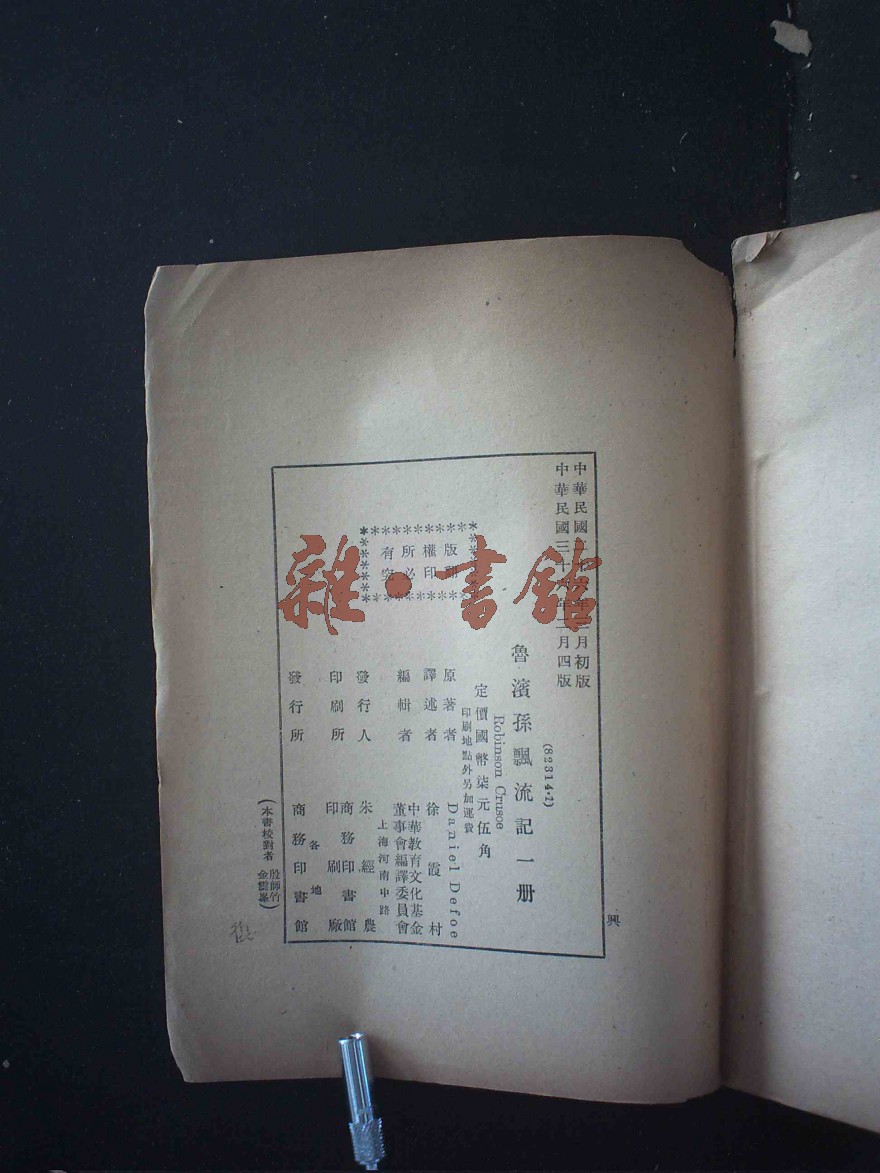 中華民國
月初版
中華民國三十
月四版
(82314·1)
魯濱孫飄流記一册
Robinson Crusoe
定價國幣柒元伍角
印刷地點外另加運費
原著者 Daniel Defoe
譯述者 徐霞村
編輯者 中華教育文化基金董事會編譯委員會
上海河南中路
發行人 朱經農
印刷所 商務印書館印刷廠
各地
發行所 商務印書館
版權所有
翻印必究
(本書校對者 殷師竹
興
雜·書館